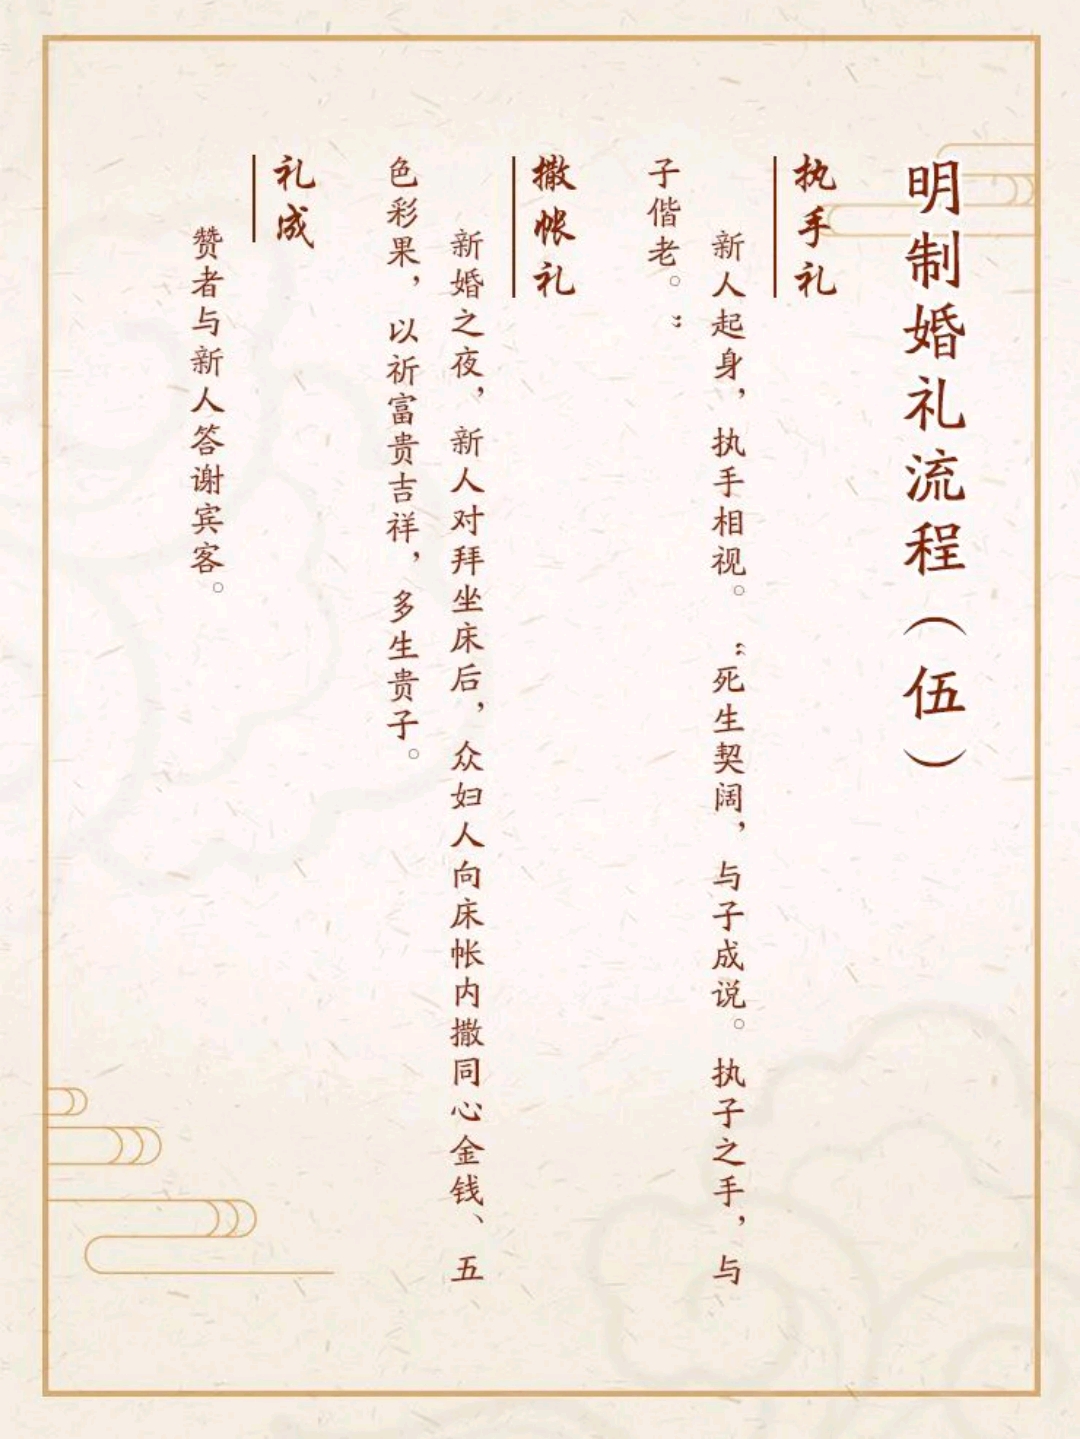 明制婚礼流程（伍）
执手礼
新人起身，执手相视。“死生契阔，与子成说。执子之手，与
子偕老。”
撒帐礼
新婚之夜，新人对拜坐床后，众妇人向床帐内撒同心金钱、五
色彩果，以祈富贵吉祥，多生贵子。
礼成
赞者与新人答谢宾客。